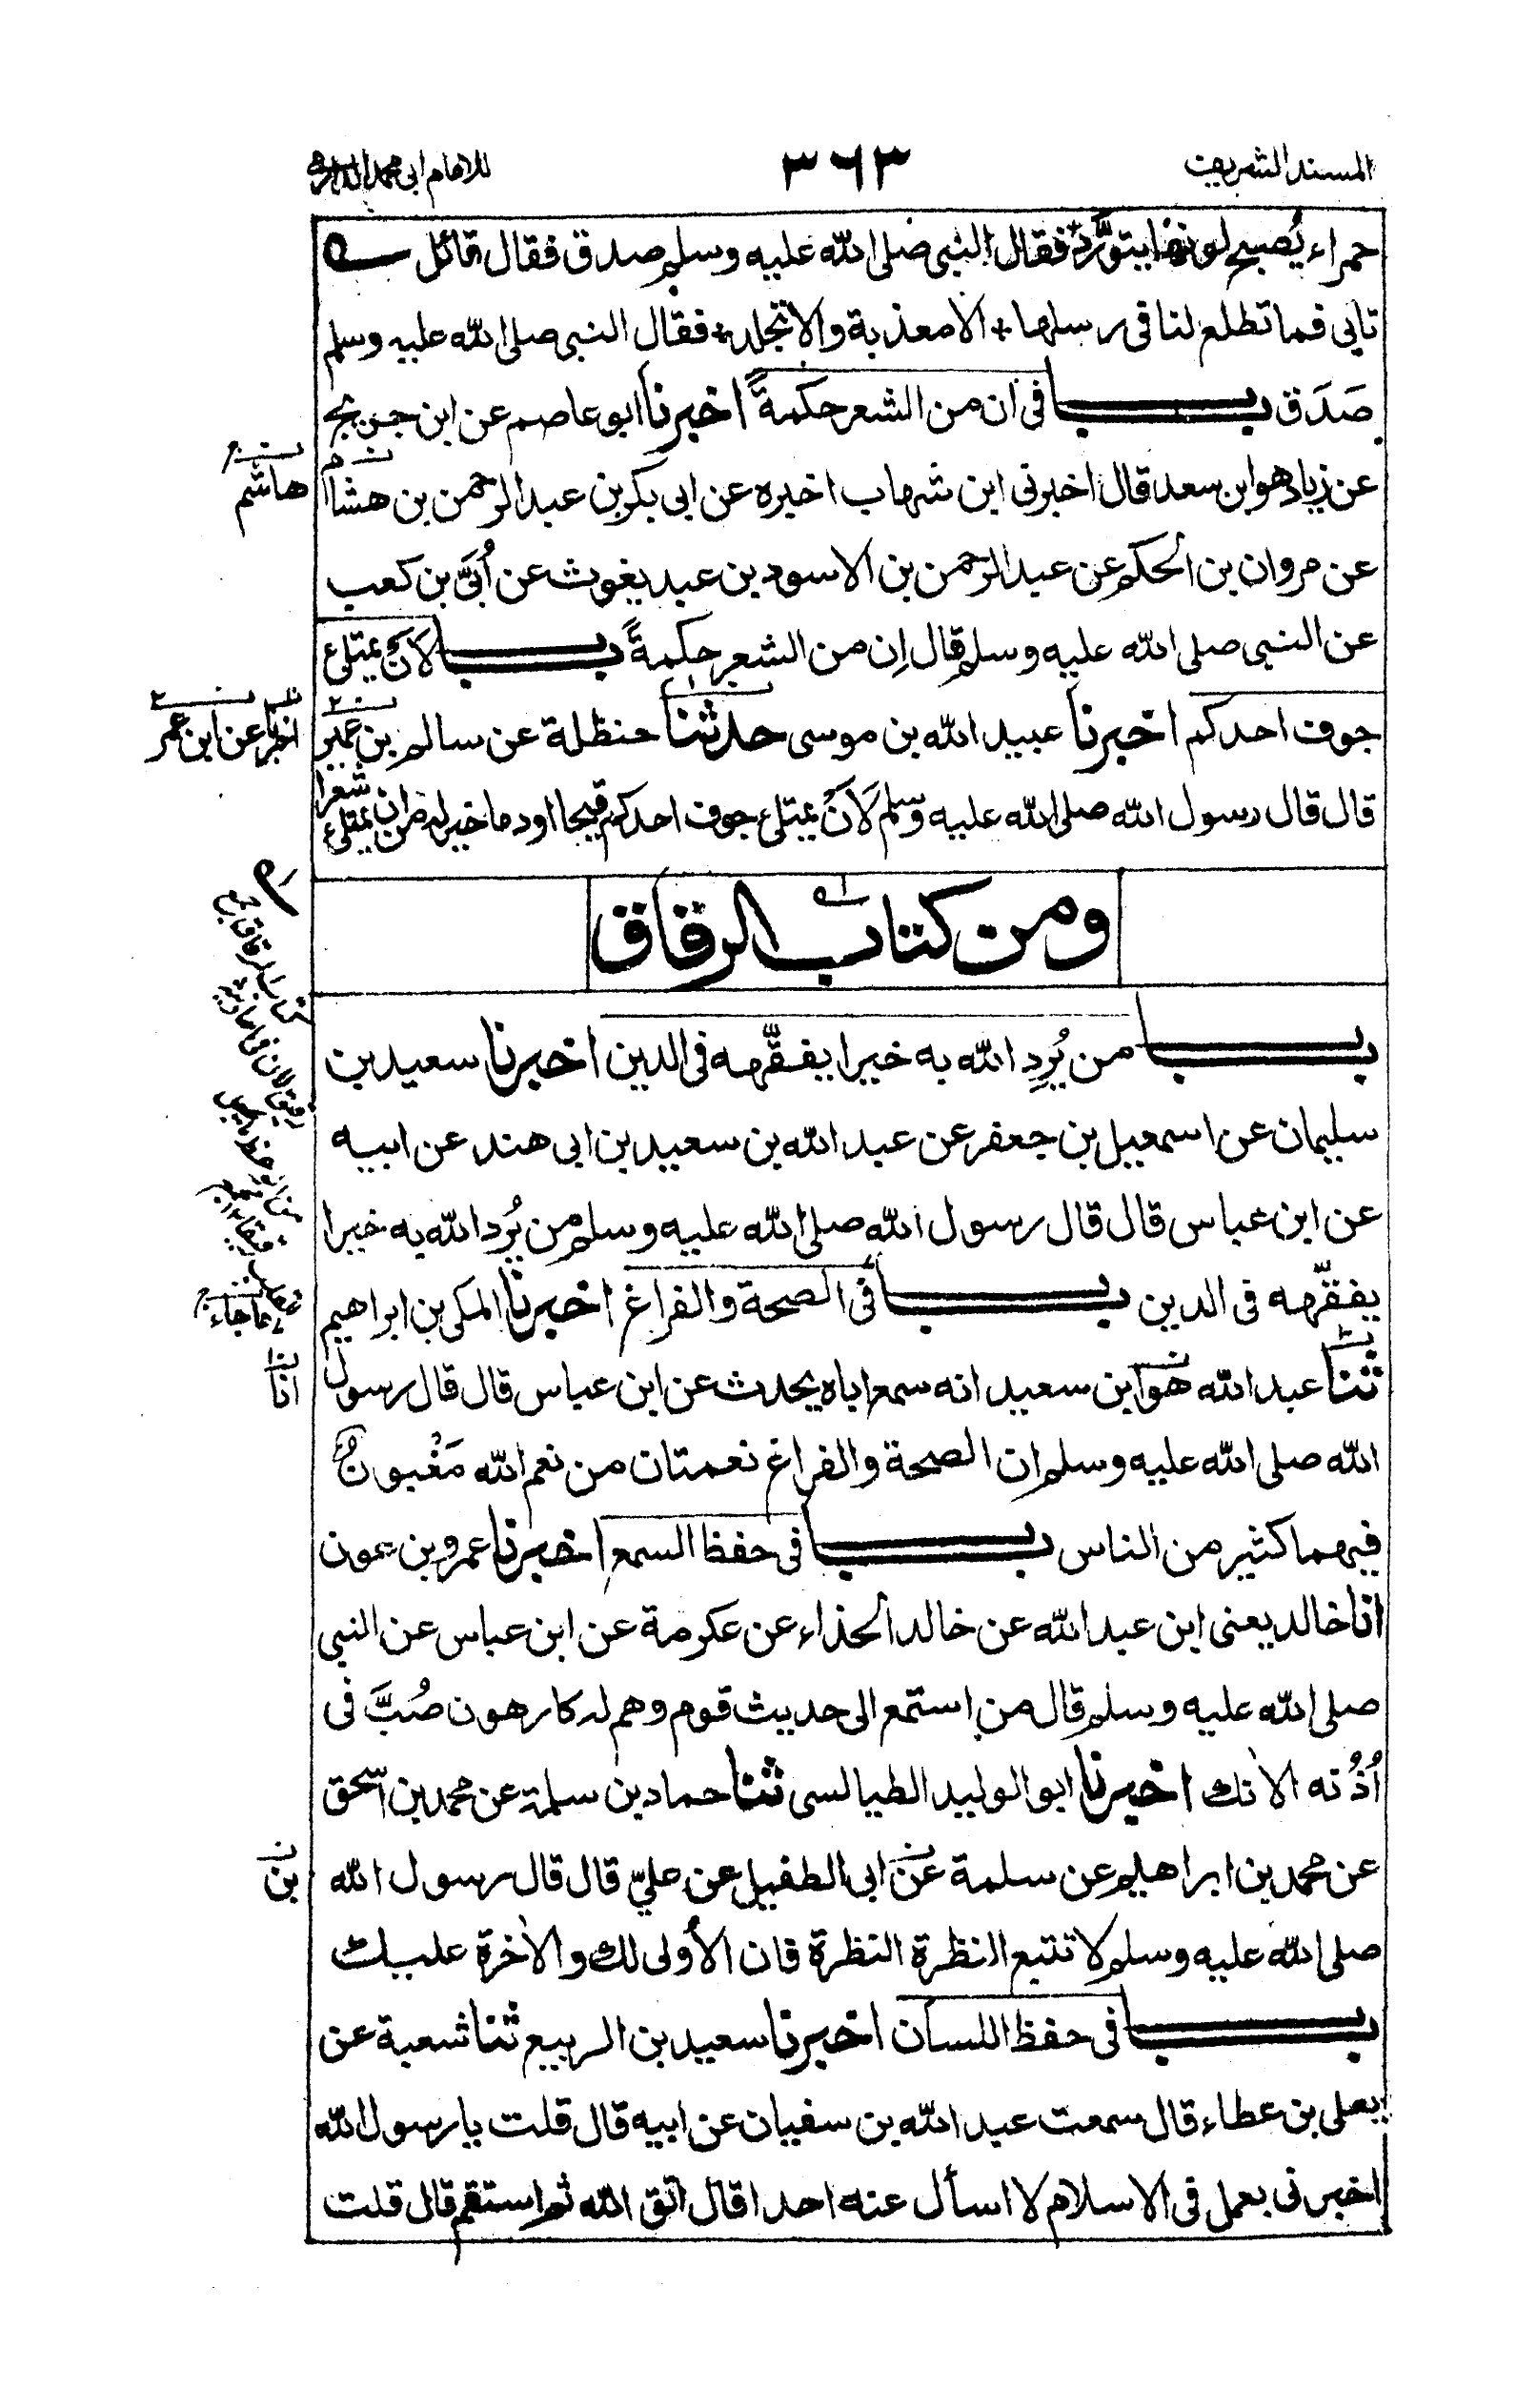 المسند الشريف
٣٦٣
للامام ابى محمد الدارمى
حمراء يُصبح لونها يتورَّد فقال النبى صلى الله عليه وسلم صدق فقال قائل ه
تابى فما تطلع لنا فى رسلها * الا معذبة والا تجلد * فقال النبى صلى الله عليه وسلم
صَدَق باب فى ان من الشعر حكمةً اخبرنا ابو عاصم عن ابن جريج
عن زياد هو ابن سعد قال اخبرنى ابن شهاب اخبره عن ابى بكر بن عبد الرحمن بن هشام
هاشم
عن مروان بن الحكم عن عبد الرحمن بن الاسود بن عبد يغوث عن أُبَىّ بن كعب
عن النبى صلى الله عليه وسلم قال اِن من الشعر حكمةً باب لانْ يمتلئ
جوف احدكم اخبرنا عبيد الله بن موسى حدثنا حنظلة عن سالم بن عمير
اخبرنا عن ابن عمر
قال قال رسول الله صلى الله عليه وسلم لَاَنْ يمتلئ جوف احدكم قيحا اودما خير له من ان يمتلئ شعرا
ومن كتاب الرقاق
باب من يُرِدِ الله به خيرا يفقّهه فى الدين اخبرنا سعيد بن
سليمان عن اسمعيل بن جعفر عن عبد الله بن سعيد بن ابى هند عن ابيه
عن ابن عباس قال قال رسول الله صلى الله عليه وسلم من يُرد الله به خيرا
يفقّهه فى الدين باب فى الصحة والفراغ اخبرنا المكى بن ابراهيم
ما جاء
ثنا عبد الله هو ابن سعيد انه سمع اباه يحدث عن ابن عباس قال قال رسول
انا
الله صلى الله عليه وسلم ان الصحة والفراغ نعمتان من نعم الله مَغْبونٌ
فيهما كثير من الناس باب فى حفظ السمع اخبرنا عمرو بن عون
انا خالد يعنى ابن عبد الله عن خالد الحذاء عن عكرمة عن ابن عباس عن النبى
صلى الله عليه وسلم قال من استمع الى حديث قوم وهم له كارهون صُبَّ فى
اُذُنه الانك اخبرنا ابو الوليد الطيالسى ثنا حماد بن سلمة عن محمد بن اسحق
عن محمد بن ابراهيم عن سلمة عن ابى الطفيل عن علىّ قال قال رسول الله
بن
صلى الله عليه وسلم لا تتبع النظرة النظرة فان الأولى لك والاخرة عليك
باب فى حفظ اللسان اخبرنا سعيد بن الربيع ثنا شعبة عن
يعلى بن عطاء قال سمعت عبد الله بن سفيان عن ابيه قال قلت يا رسول الله
اخبرنى بعمل فى الاسلام لا اسأل عنه احدا قال اتق الله ثم استقم قال قلت